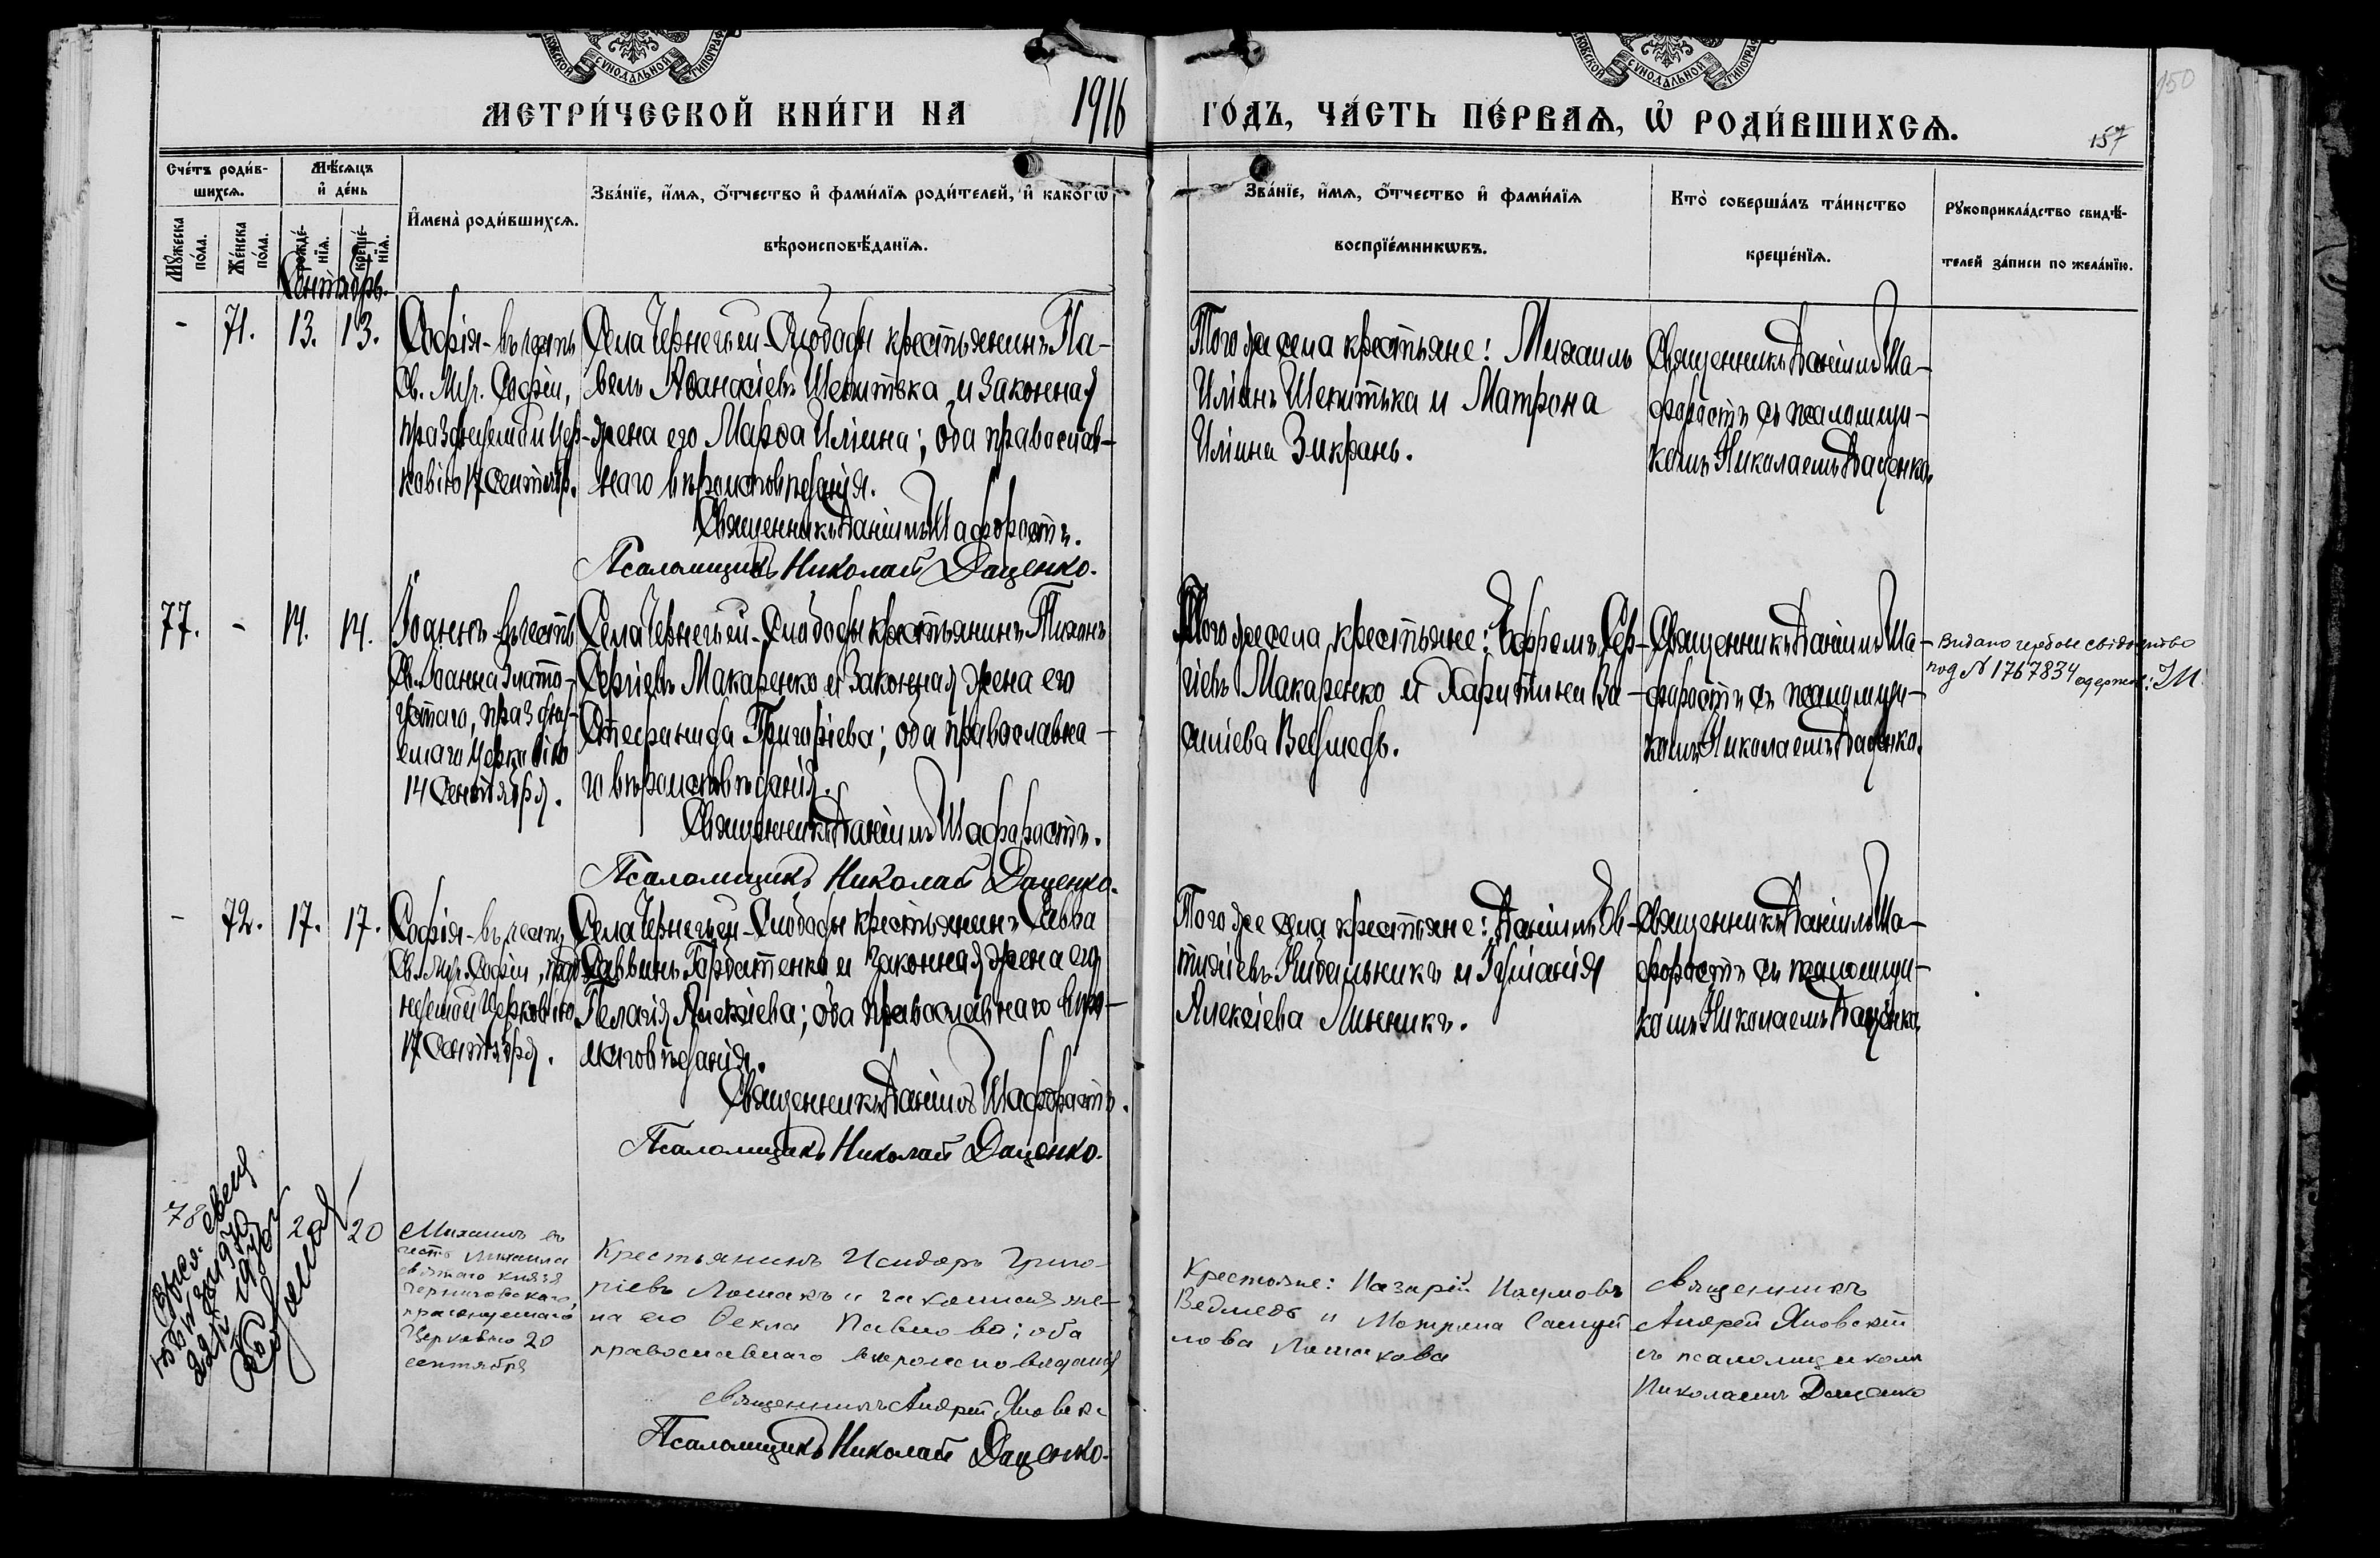 МЕТРИ́ЧЕСКОЙ КНИ́ГИ НА 1916 ГО́ДЪ, ЧА́СТЬ ПЕ́РВАЯ, Ѡ҆ РОДИ́ВШИХСЯ.
150
157
Сче́тъ роди́в-
шихся.
Мѣ́сяцъ
и҆ де́нь
Мꙋ́жеска
по́ла.
Же́нска
по́ла.
рожде́-
нїя.
креще́-
нїя.
И҆мена̀ роди́вшихся.
Зва́нїе, и҆́мя, о҆́тчество и҆ фами́лїя роди́телей, и҆ како́гѡ
вѣроисповѣ́данїя.
Зва́нїе, и҆́мя, о҆́тчество и҆ фами́лїя
воспрїе́мникѡвъ.
Кто̀ соверша́лъ та́инство
креще́нїя.
Рꙋкоприкла́дство свидѣ́-
телей за́писи по жела́нїю.
Сентябрь.
- 71. 13. 13.
Софія - въ честь
Св. Мц. Софіи,
празднуемой Цер-
ковію 17 Сентябр.
Села Чернечьей-Слободы крестьянинъ Па-
велъ Аѳанасіевъ Шепитька и законная
жена его Марѳа Иліина; оба православ-
наго вѣроисповѣданія.
Священникъ Даніилъ Шафоростъ.
Псаломщикъ Николай Даценко.
Того же села крестьяне: Михаилъ
Иліинъ Шепитька и Матрона
Иліина Зикрань.
Священникъ Даніилъ Ша-
форостъ съ псаломщи-
комъ Николаемъ Даценко.
77. - 14. 14.
Іоаннъ - въ честь
Св. Іоанна Злато-
устаго, праздну-
емаго Церковію
14 Сентября.
Села Чернечьей-Слободы крестьянинъ Тихонъ
Сергіевъ Макаренко и законная жена его
Стефанида Григоріева; оба православна-
го вѣроисповѣданія.
Священникъ Даніилъ Шафоростъ.
Псаломщикъ Николай Даценко.
Того же села крестьяне: Ефремъ Сер-
гіевъ Макаренко и Харитинія Ва-
силіева Ведмедь.
Священникъ Даніилъ Ша-
форостъ съ псаломщи-
комъ Николаемъ Даценко.
Видано гербове свідоцтво
под № 1767834
- 72. 17. 17.
Софія - въ честь
Св. Мц. Софіи, празд-
нуемой Церковію
17 Сентября.
Села Чернечьей-Слободы крестьянинъ Савва
Саввинъ Горбатенко и законная жена его
Пелагія Алексіева; оба православнаго вѣро-
исповѣданія.
Священникъ Даніилъ Шафоростъ.
Псаломщикъ Николай Даценко.
Того же села крестьяне: Даніилъ Ев-
тихіевъ Кибальникъ и Іуліанія
Алексіева Линникъ.
Священникъ Даніилъ Ша-
форостъ съ псаломщи-
комъ Николаемъ Даценко.
78 20 20
Михаилъ въ
честь Михаила
святаго князя
Черниговскаго,
празднуемаго
Церковію 20
сентября
Крестьянинъ Исидоръ Григо-
ріевъ Лошакъ и законная же-
на его Ѳекла Павлова; оба
православнаго вѣроисповѣданія
Священникъ Андрей Яновскі
Псаломщикъ Николай Даценко.
Крестьяне: Назарій Наумовъ
Ведмедь и Матрона Самуи
лова Лошакова
Священникъ
Андрей Яновскій
съ псаломщикомъ
Николаемъ Даценко